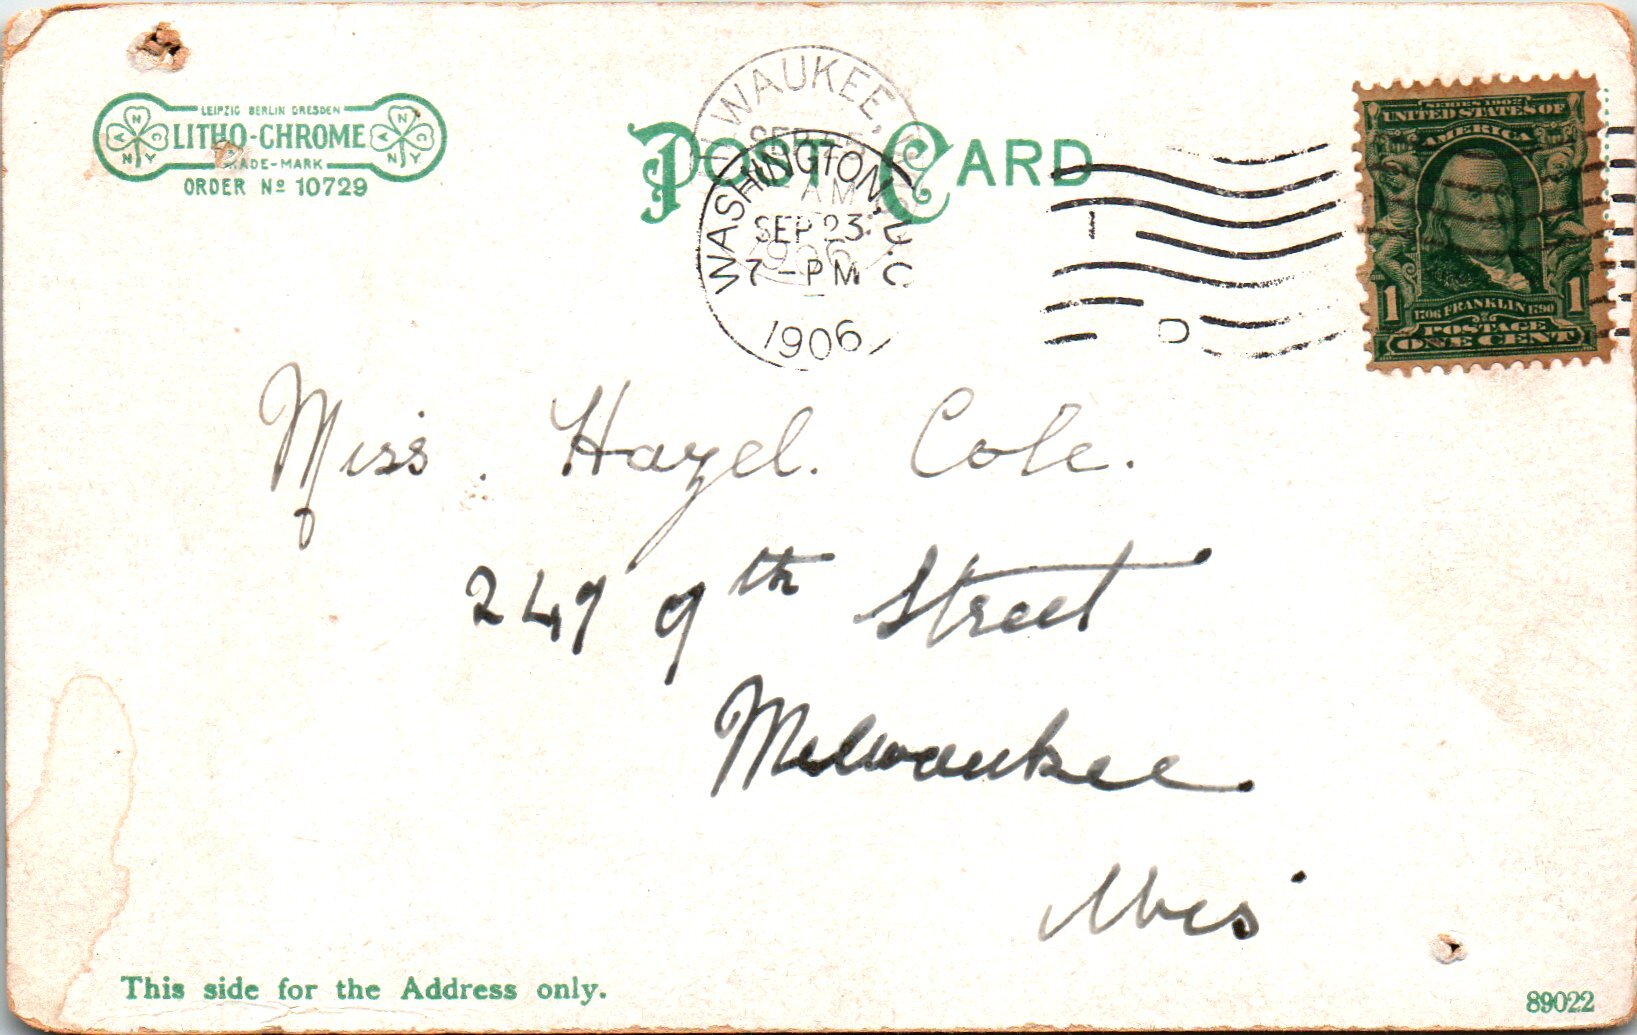 LEIPZIG BERLIN DRESDEN
LITHO-CHROME
TRADE-MARK
ORDER Nº 10729
ANC
NY
ANC
NY
POST CARD
MILWAUKEE,
SEP
AM
1906
WASHINGTON, D.C.
SEP 23
7-PM
1906
1
D
SERIES 1902
UNITED STATES OF
AMERICA
1 1706 FRANKLIN 1790 1
POSTAGE
ONE CENT
Miss. Hazel. Cole.
249 9th Street
Milwaukee.
Wis
This side for the Address only.
89022